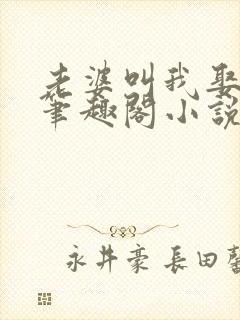 老婆叫我娶
筆趣閣小説
永井豪 長田馨